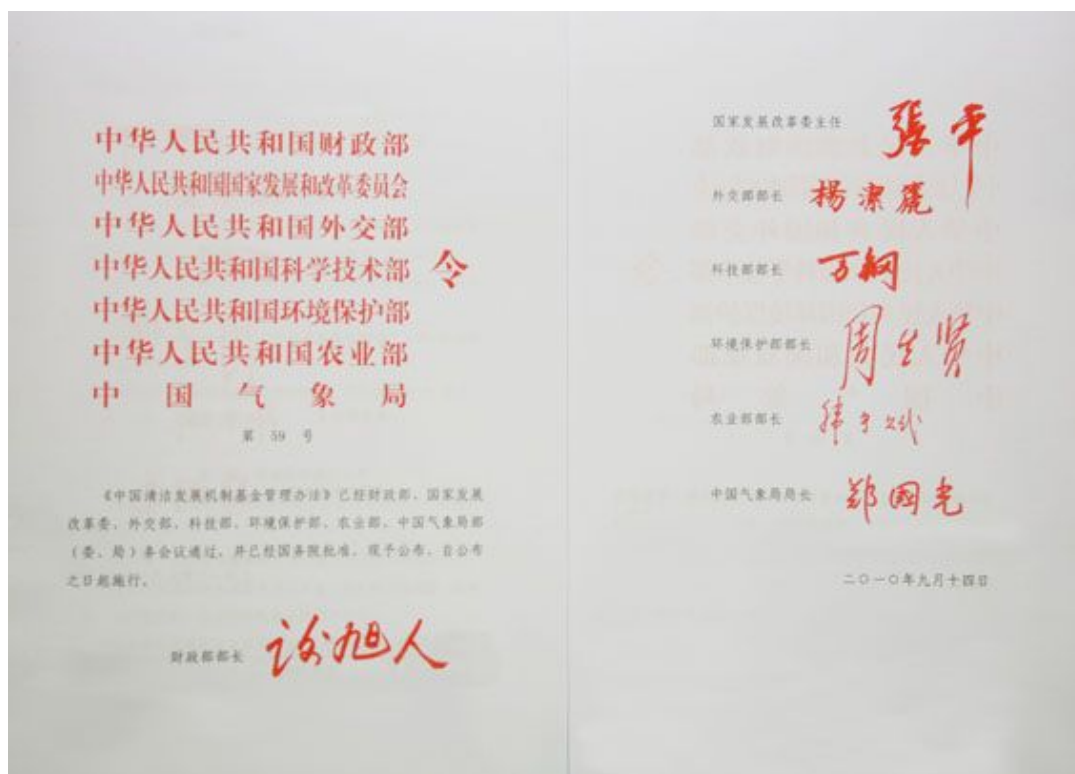 中华人民共和国财政部
中华人民共和国国家发展和改革委员会
中华人民共和国外交部
中华人民共和国科学技术部 令
中华人民共和国环境保护部
中华人民共和国农业部
中国气象局
第 59 号
《中国清洁发展机制基金管理办法》已经财政部、国家发展
改革委、外交部、科技部、环境保护部、农业部、中国气象局部
(委、局)务会议通过,并已经国务院批准,现予公布,自公布
之日起施行。
财政部部长 谢旭人
国家发展改革委主任 張平
外交部部长 楊潔篪
科技部部长 万鋼
环境保护部部长 周生贤
农业部部长 韩长赋
中国气象局局长 郑國光
二〇一〇年九月十四日